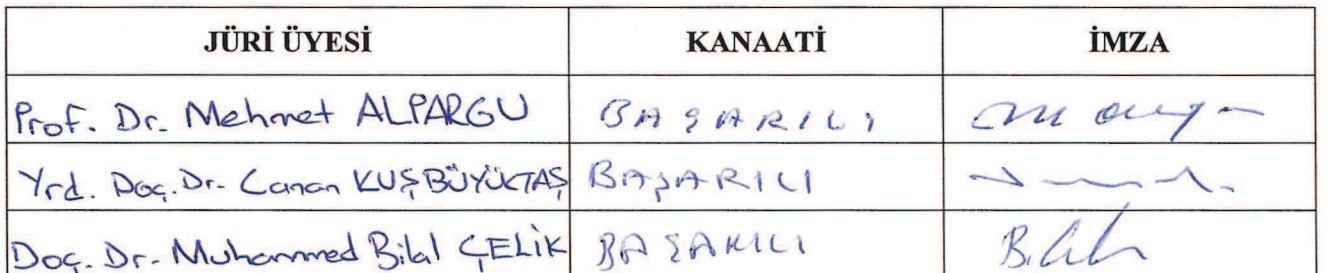 JÜRİ ÜYESİ KANAATİ İMZA
Prof. Dr. Mehmet ALPARGU BAŞARILI
Yrd. Doç. Dr. Canan KUŞBÜYÜKTAŞ BAŞARILI
Doç. Dr. Muhammed Bilal ÇELİK BAŞARILI